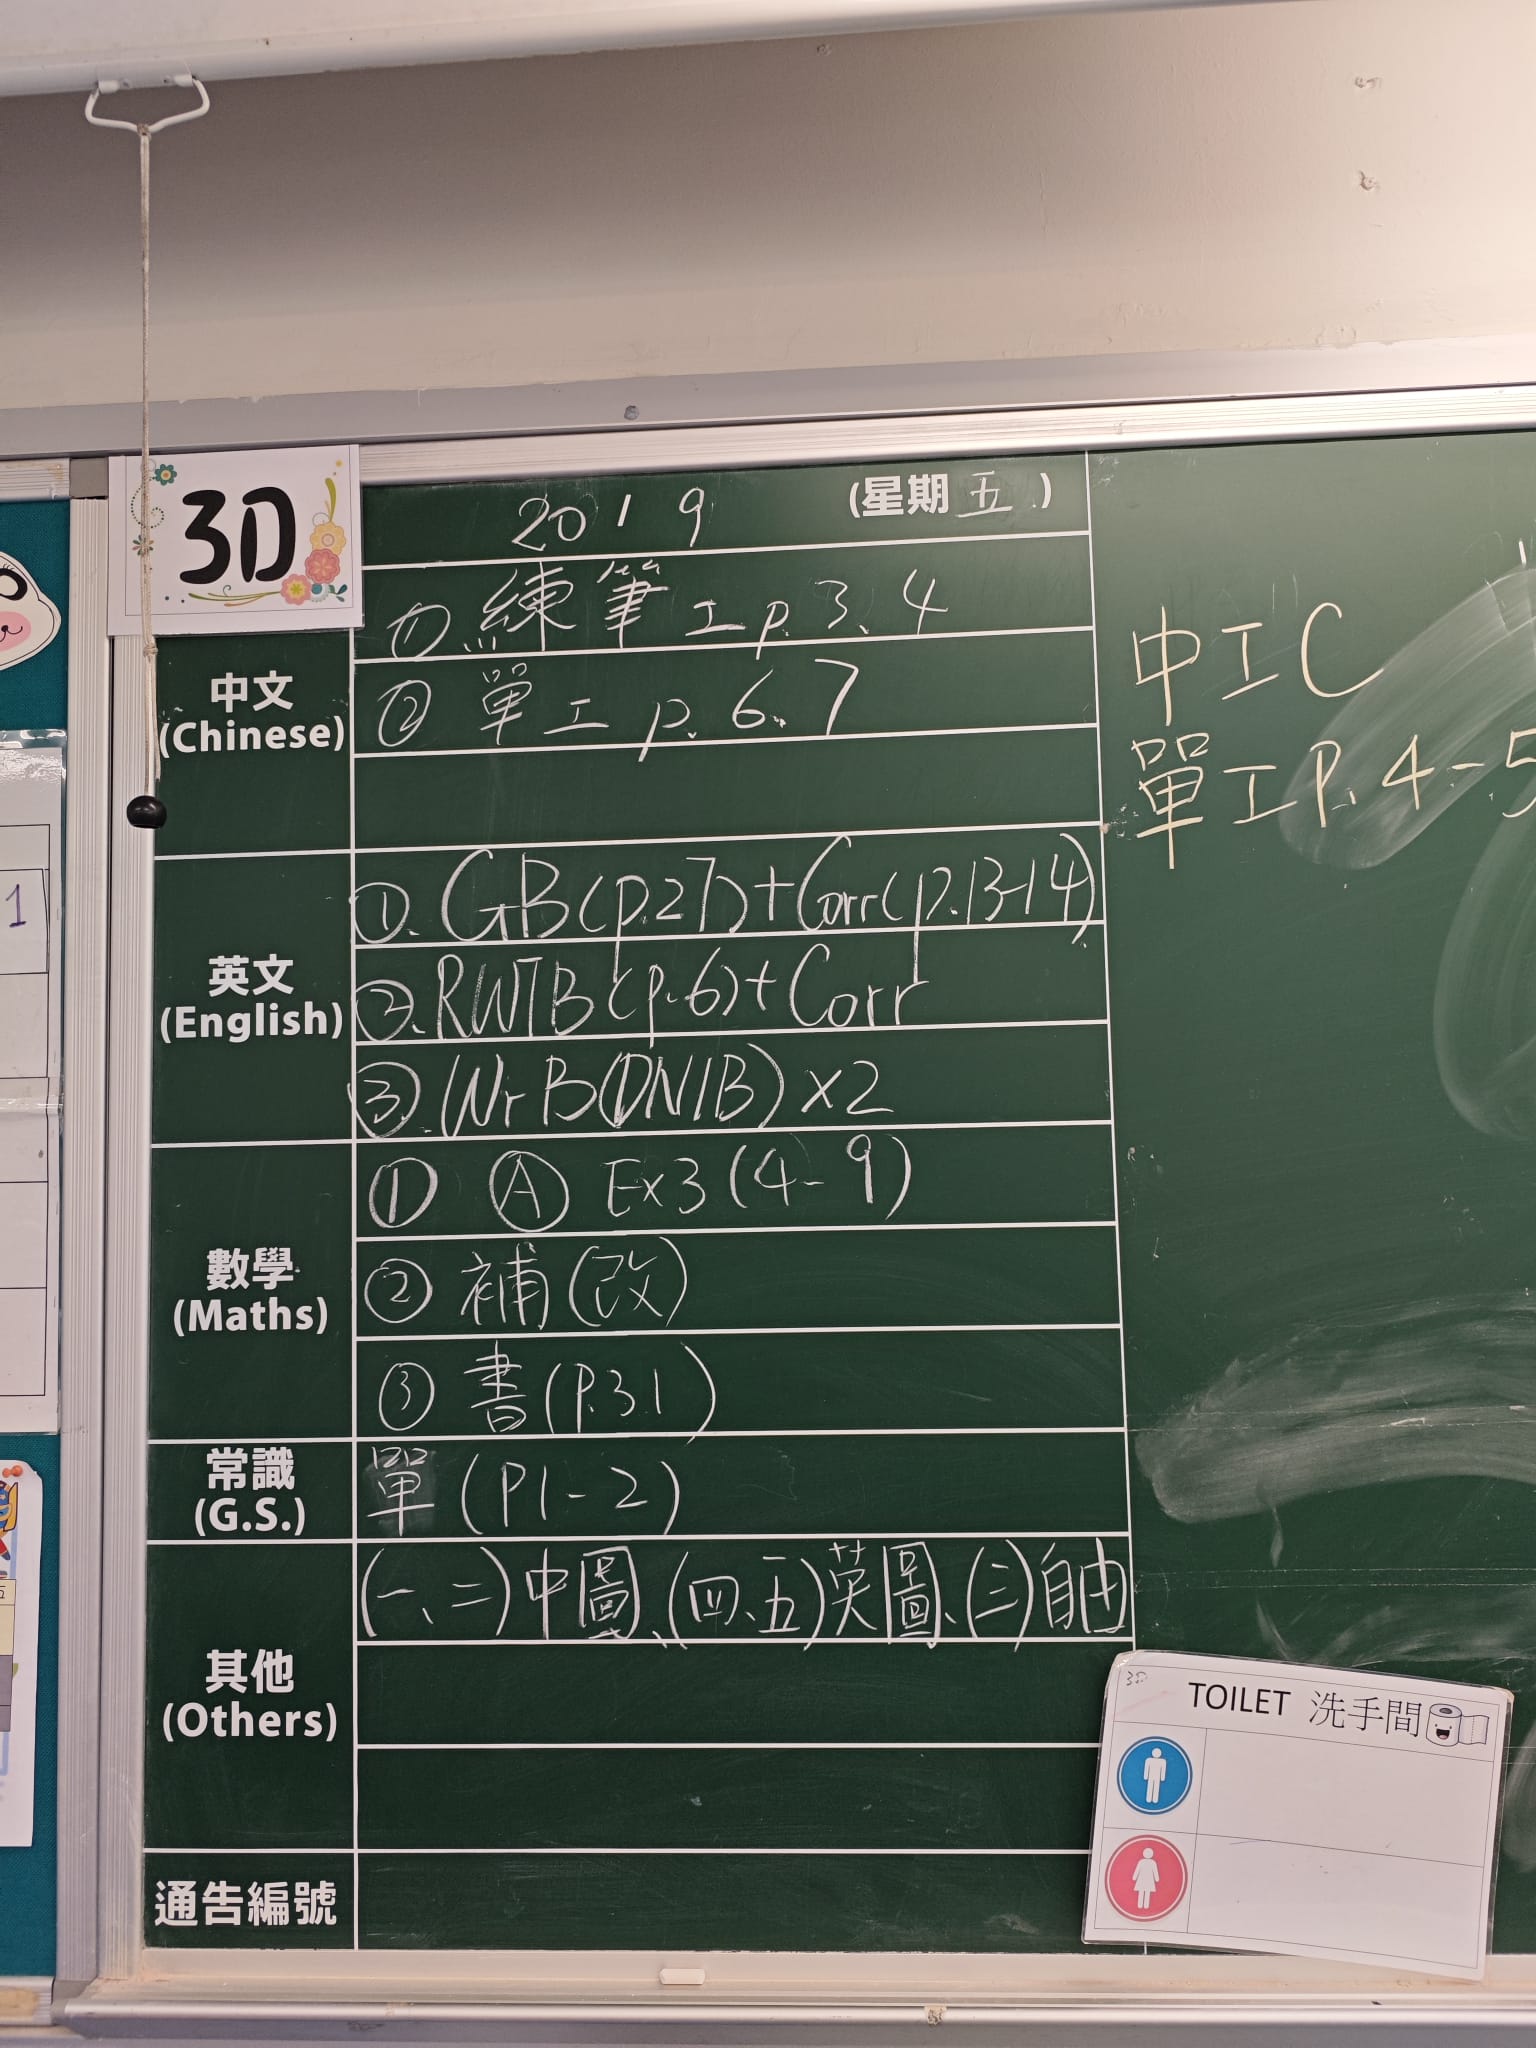 3D
20 1 9 (星期五)
中文
(Chinese)
① 練筆工p.3、4
② 單工p.6、7
英文
(English)
①. GB(p.27)+Corr(p.13-14)
②. RWTB(p.6)+Corr
③. WrB(DN1B)×2
數學
(Maths)
① Ⓐ Ex3(4-9)
② 補(改)
③ 書(P.31)
常識
(G.S.)
單(P1-2)
其他
(Others)
(一、二)中圖、(四、五)英圖、(三)自由
通告編號
中工C
單工P.4-5
TOILET 洗手間
3D
1
五